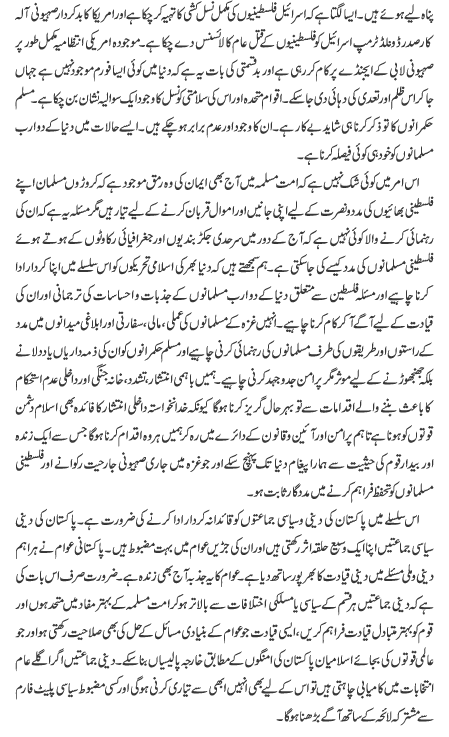 پناہ لیے ہوئے ہیں۔ ایسا لگتا ہے کہ اسرائیل فلسطینیوں کی مکمل نسل کشی کا تہیہ کر چکا ہے اور امریکا کا بدکردار صہیونی آلہ
کار صدر ڈونلڈ ٹرمپ اسرائیل کو فلسطینیوں کے قتل عام کا لائسنس دے چکا ہے۔ موجودہ امریکی انتظامیہ مکمل طور پر
صہیونی لابی کے ایجنڈے پر کام کر رہی ہے اور بدقسمتی کی بات یہ ہے کہ دنیا میں کوئی ایسا فورم موجود نہیں ہے جہاں
جا کر اس ظلم اور تعدی کی دہائی دی جا سکے۔ اقوام متحدہ اور اس کی سلامتی کونسل کا وجود ایک سوالیہ نشان بن چکا ہے۔ مسلم
حکمرانوں کا تو ذکر کرنا ہی شاید بے کار ہے۔ ان کا وجود اور عدم برابر ہو چکے ہیں۔ ایسے حالات میں دنیا کے دو ارب
مسلمانوں کو خود ہی کوئی فیصلہ کرنا ہے۔
اس امر میں کوئی شک نہیں ہے کہ امت مسلمہ میں آج بھی ایمان کی وہ رمق موجود ہے کہ کروڑوں مسلمان اپنے
فلسطینی بھائیوں کی مدد و نصرت کے لیے اپنی جانیں اور اموال قربان کرنے کے لیے تیار ہیں مگر مسئلہ یہ ہے کہ ان کی
رہنمائی کرنے والا کوئی نہیں ہے کہ آج کے دور میں سرحدی جکڑ بندیوں اور جغرافیائی رکاوٹوں کے ہوتے ہوئے
فلسطینی مسلمانوں کی مدد کیسے کی جا سکتی ہے۔ ہم سمجھتے ہیں کہ دنیا بھر کی اسلامی تحریکوں کو اس سلسلے میں اپنا کردار ادا
کرنا چاہیے اور مسئلہ فلسطین سے متعلق دنیا کے دو ارب مسلمانوں کے جذبات و احساسات کی ترجمانی اور ان کی
قیادت کے لیے آگے آ کر کام کرنا چاہیے۔ انہیں غزہ کے مسلمانوں کی عملی، مالی، سفارتی اور ابلاغی میدانوں میں مدد
کے راستوں اور طریقوں کی طرف مسلمانوں کی رہنمائی کرنی چاہیے اور مسلم حکمرانوں کو ان کی ذمہ داریاں یاد دلانے
بلکہ جھنجھوڑنے کے لیے موثر مگر پر امن جدوجہد کرنی چاہیے۔ ہمیں باہمی انتشار، تشدد، خانہ جنگی اور داخلی عدم استحکام
کا باعث بننے والے اقدامات سے تو بہر حال گریز کرنا ہوگا کیونکہ خدانخواستہ داخلی انتشار کا فائدہ بھی اسلام دشمن
قوتوں کو ہونا ہے تاہم پر امن اور آئین و قانون کے دائرے میں رہ کر ہمیں ہر وہ اقدام کرنا ہوگا جس سے ایک زندہ
اور بیدار قوم کی حیثیت سے ہمارا پیغام دنیا تک پہنچ سکے اور جو غزہ میں جاری صہیونی جارحیت رکوانے اور فلسطینی
مسلمانوں کو تحفظ فراہم کرنے میں مددگار ثابت ہو۔
اس سلسلے میں پاکستان کی دینی و سیاسی جماعتوں کو قائدانہ کردار ادا کرنے کی ضرورت ہے۔ پاکستان کی دینی
سیاسی جماعتیں اپنا ایک وسیع حلقہ اثر رکھتی ہیں اور ان کی جڑیں عوام میں بہت مضبوط ہیں۔ پاکستانی عوام نے ہر اہم
دینی و ملی مسئلے میں دینی قیادت کا بھرپور ساتھ دیا ہے۔ عوام کا یہ جذبہ آج بھی زندہ ہے۔ ضرورت صرف اس بات کی
ہے کہ دینی جماعتیں ہر قسم کے سیاسی یا مسلکی اختلافات سے بالاتر ہو کر امت مسلمہ کے بہتر مفاد میں متحد ہوں اور
قوم کو بہتر متبادل قیادت فراہم کریں، ایسی قیادت جو عوام کے بنیادی مسائل کے حل کی بھی صلاحیت رکھتی ہو اور جو
عالمی قوتوں کی بجائے اسلامیان پاکستان کی امنگوں کے مطابق خارجہ پالیسیاں بنا سکے۔ دینی جماعتیں اگر اگلے عام
انتخابات میں کامیابی چاہتی ہیں تو اس کے لیے بھی انہیں ابھی سے تیاری کرنی ہوگی اور کسی مضبوط سیاسی پلیٹ فارم
سے مشترکہ لائحہ کے ساتھ آگے بڑھنا ہوگا۔